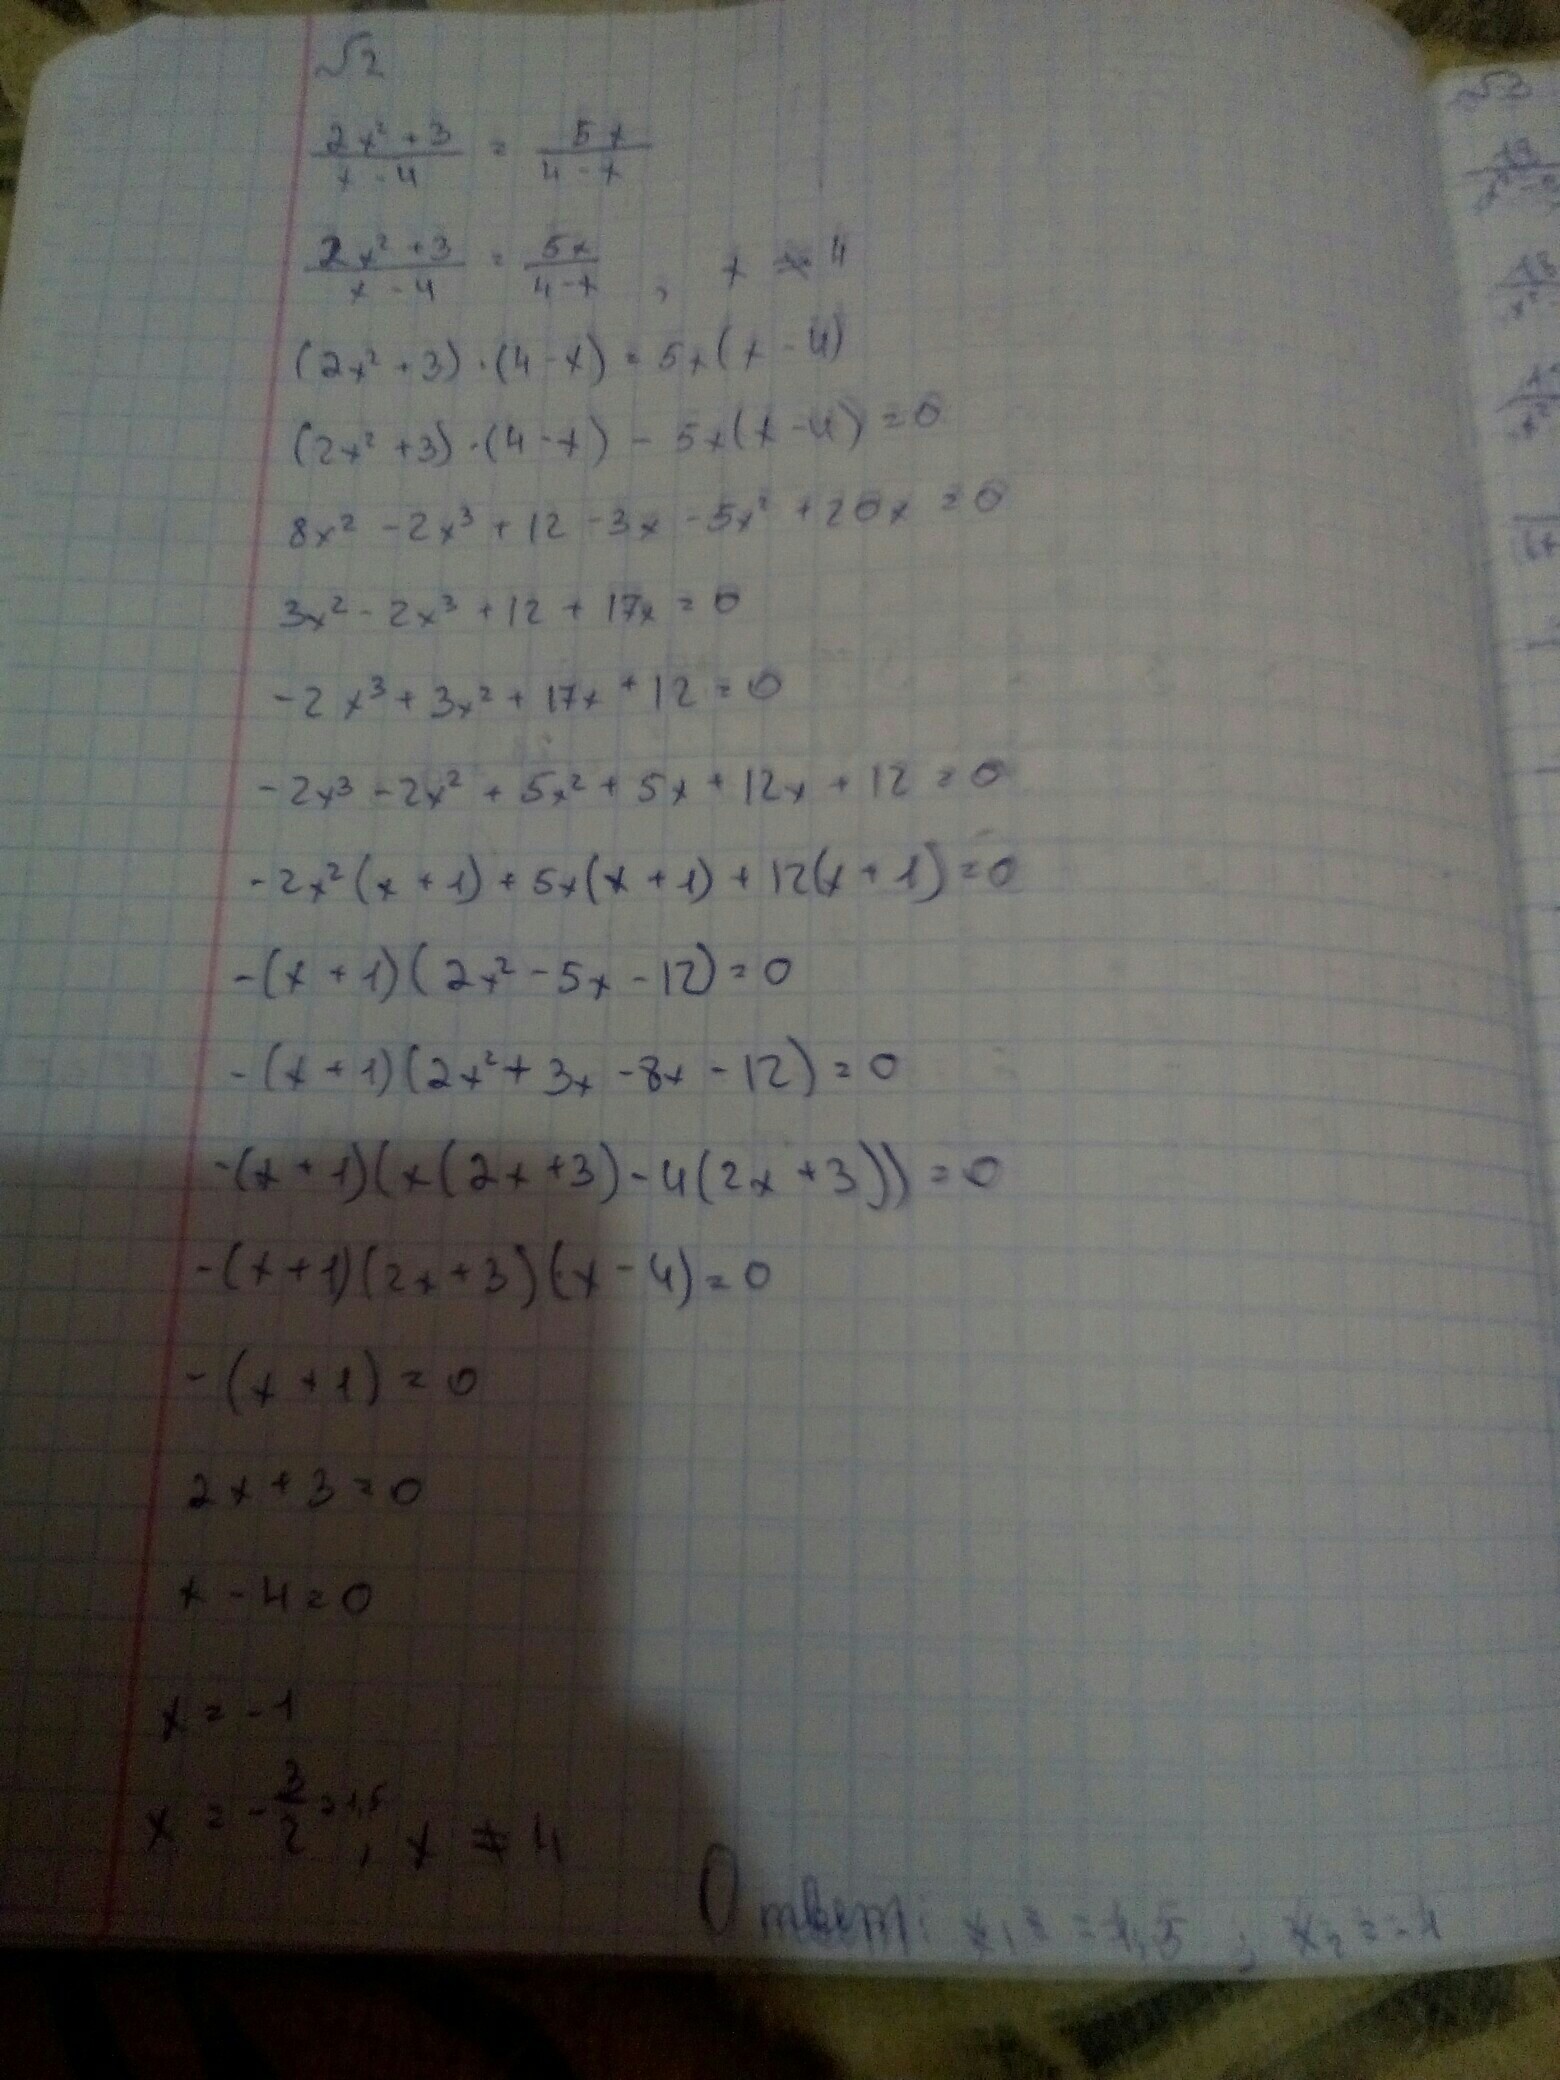 √2
(2x² + 3)/(x - 4) = 5x/(4 - x)
(2x² + 3)/(x - 4) = 5x/(4 - x) , x ≠ 4
(2x² + 3) · (4 - x) = 5x(x - 4)
(2x² + 3) · (4 - x) - 5x(x - 4) = 0
8x² - 2x³ + 12 - 3x - 5x² + 20x = 0
3x² - 2x³ + 12 + 17x = 0
-2x³ + 3x² + 17x + 12 = 0
-2x³ - 2x² + 5x² + 5x + 12x + 12 = 0
-2x²(x + 1) + 5x(x + 1) + 12(x + 1) = 0
-(x + 1)(2x² - 5x - 12) = 0
-(x + 1)(2x² + 3x - 8x - 12) = 0
-(x + 1)(x(2x + 3) - 4(2x + 3)) = 0
-(x + 1)(2x + 3)(x - 4) = 0
-(x + 1) = 0
2x + 3 = 0
x - 4 = 0
x = -1
x = -3/2 = 1,5 , x ≠ 4
Ответ: x₁ = -1,5 ; x₂ = -1
√3